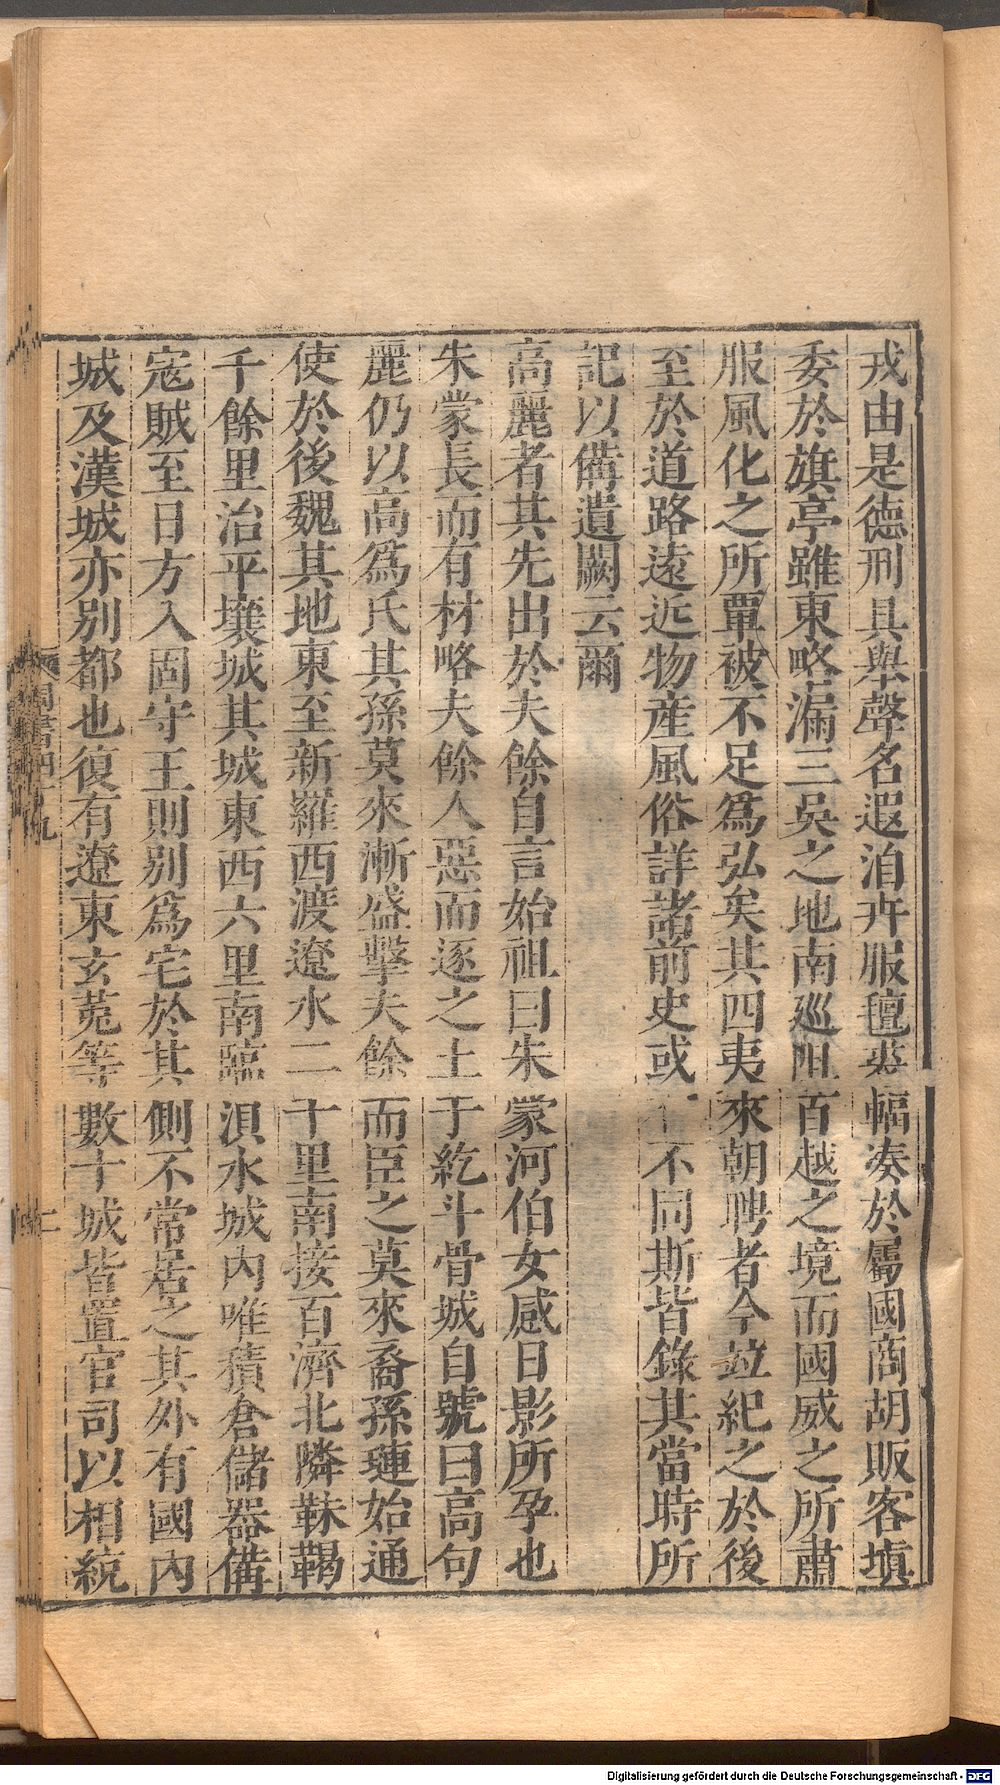 戎由是德刑具舉聲名遐洎卉服氊裘輻湊於屬國商胡販客塡
委於旗亭雖東略漏三吳之地南巡阻百越之境而國威之所肅
服風化之所覃被不足爲弘矣其四夷來朝聘者今竝紀之於後
至於道路遠近物産風俗詳諸前史或有不同斯皆錄其當時所
記以備遺闕云爾
高麗者其先出於夫餘自言始祖曰朱蒙河伯女感日影所孕也
朱蒙長而有材略夫餘人惡而逐之土于紇斗骨城自號曰高句
麗仍以高爲氏其孫莫來漸盛擊夫餘而臣之莫來裔孫璉始通
使於後魏其地東至新羅西渡遼水二千里南接百濟北隣靺鞨
千餘里治平壤城其城東西六里南臨浿水城內唯積倉儲器備
寇賊至日方入固守王則別爲宅於其側不常居之其外有國內
城及漢城亦別都也復有遼東玄菟等數十城皆置官司以相統
周書四十九
二
Digitalisierung gefördert durch die Deutsche Forschungsgemeinschaft - DFG